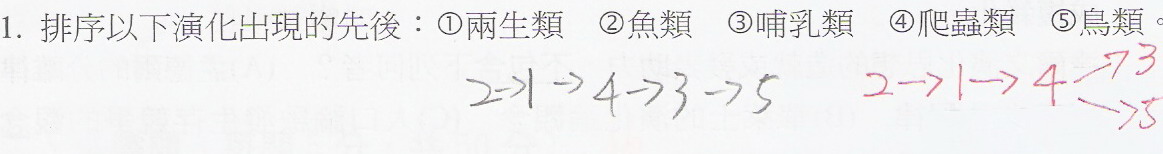 1. 排序以下演化出現的先後：①兩生類　②魚類　③哺乳類　④爬蟲類　⑤鳥類。
2→1→4→3→5
2→1→4→3
→5